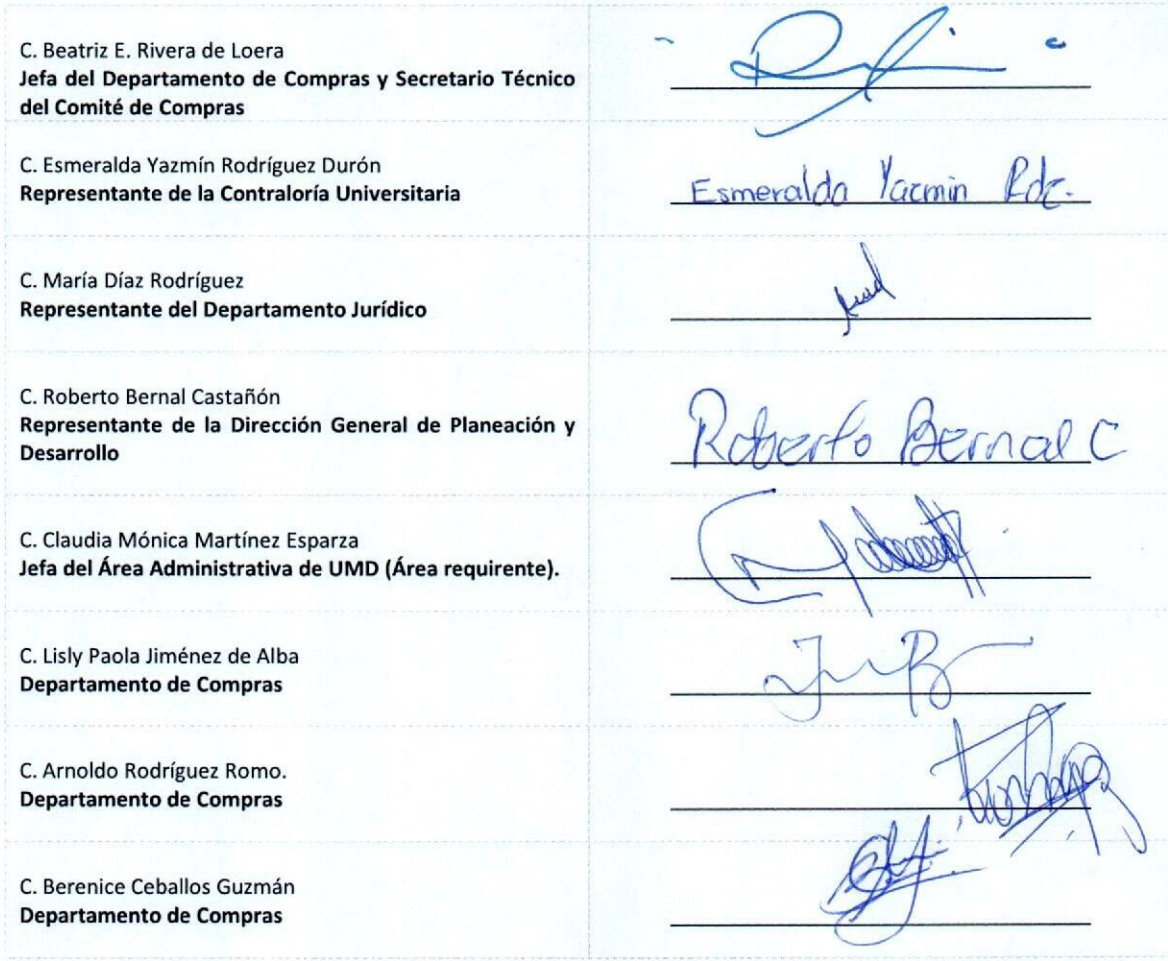 C. Beatriz E. Rivera de Loera
Jefa del Departamento de Compras y Secretario Técnico
del Comité de Compras
C. Esmeralda Yazmín Rodríguez Durón
Representante de la Contraloría Universitaria
Esmeralda Yazmin Rdz.
C. María Díaz Rodríguez
Representante del Departamento Jurídico
C. Roberto Bernal Castañón
Representante de la Dirección General de Planeación y
Desarrollo
Roberto Bernal C
C. Claudia Mónica Martínez Esparza
Jefa del Área Administrativa de UMD (Área requirente).
C. Lisly Paola Jiménez de Alba
Departamento de Compras
C. Arnoldo Rodríguez Romo.
Departamento de Compras
C. Berenice Ceballos Guzmán
Departamento de Compras